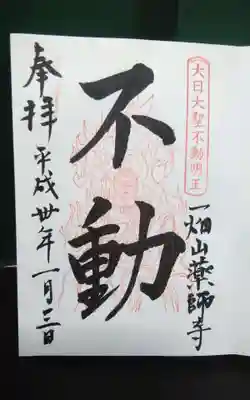 大日大聖不動明王
奉拝
不動
平成卅年一月三日
一畑山薬師寺